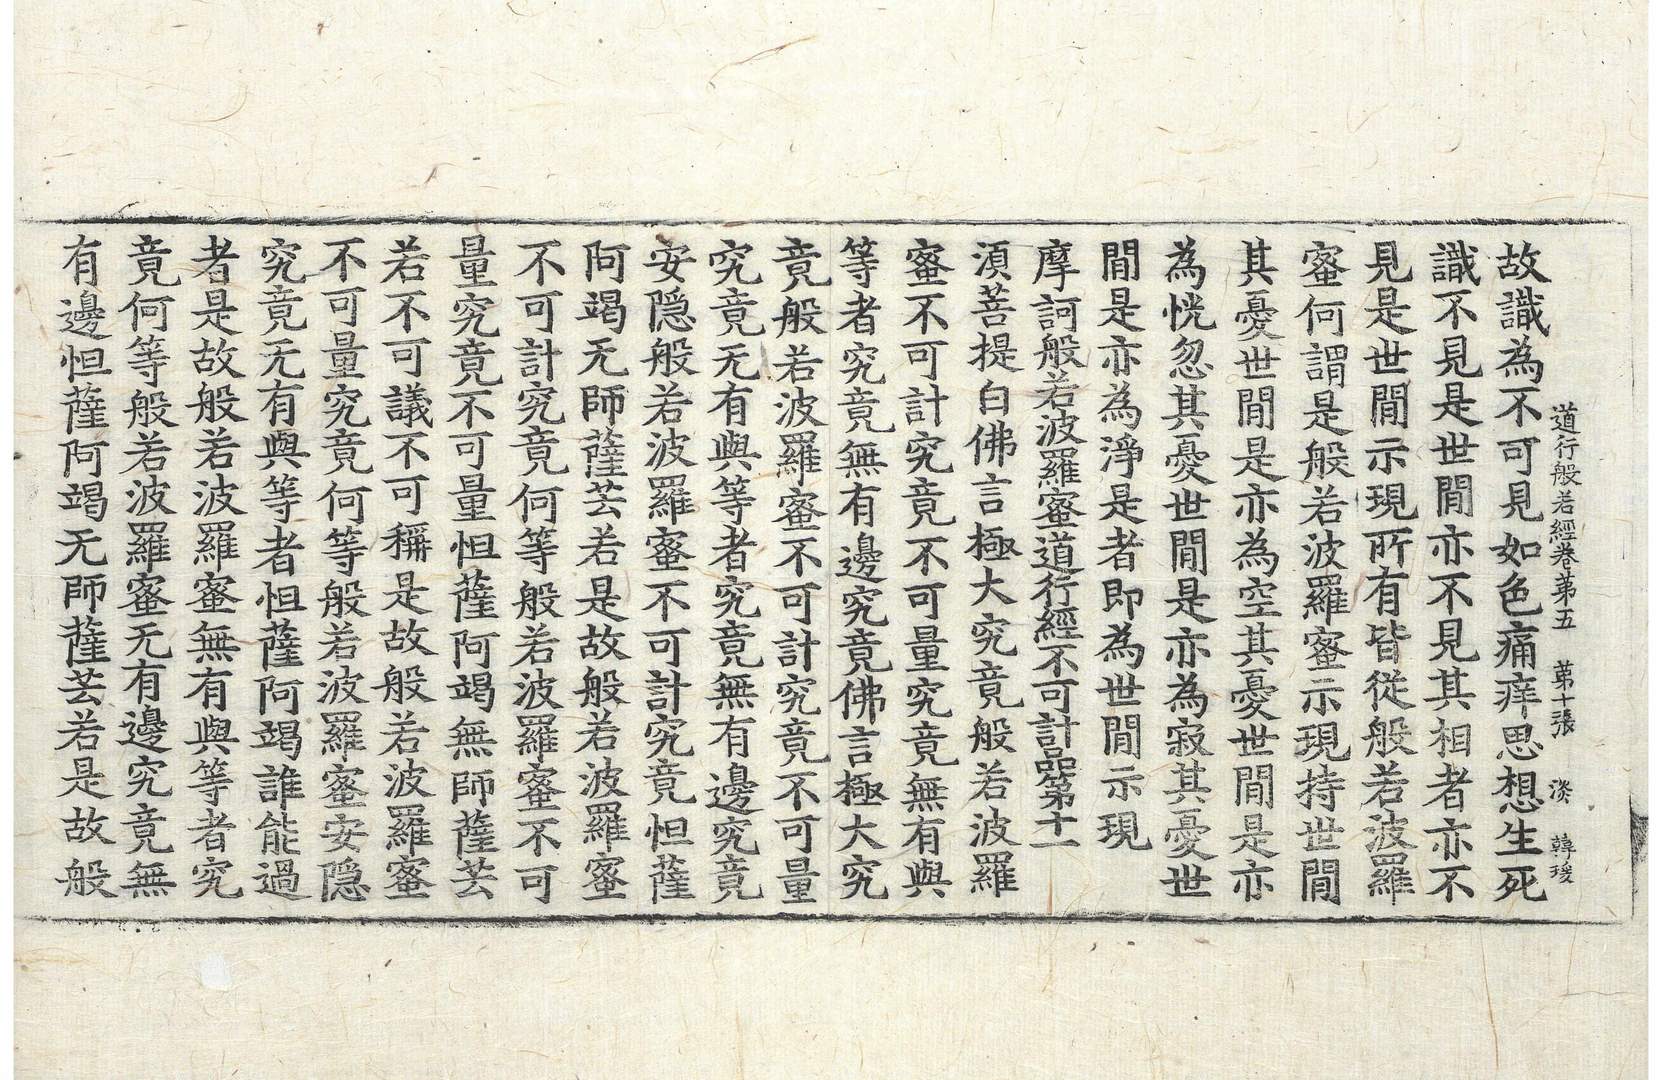 道行般若經卷第五 第十張 淡 韓
故識為不可見如色痛痒思想生死
識不見是世間亦不見其相者亦不
見是世間示現所有皆從般若波羅
蜜何謂是般若波羅蜜示現持世間
其憂世間是亦為空其憂世間是亦
為恍忽其憂世間是亦為寂其憂世
間是亦為淨是者即為世間示現
摩訶般若波羅蜜道行經不可計品第十一
須菩提白佛言極大究竟般若波羅
蜜不可計究竟不可量究竟無有與
等者究竟無有邊究竟佛言極大究
竟般若波羅蜜不可計究竟不可量
究竟无有與等者究竟無有邊究竟
安隱般若波羅蜜不可計究竟怛薩
阿竭无師薩芸若是故般若波羅蜜
不可計究竟何等般若波羅蜜不可
量究竟不可量怛薩阿竭無師薩芸
若不可議不可稱是故般若波羅蜜
不可量究竟何等般若波羅蜜安隱
究竟无有與等者怛薩阿竭誰能過
者是故般若波羅蜜無有與等者究
竟何等般若波羅蜜无有邊究竟無
有邊怛薩阿竭无師薩芸若是故般